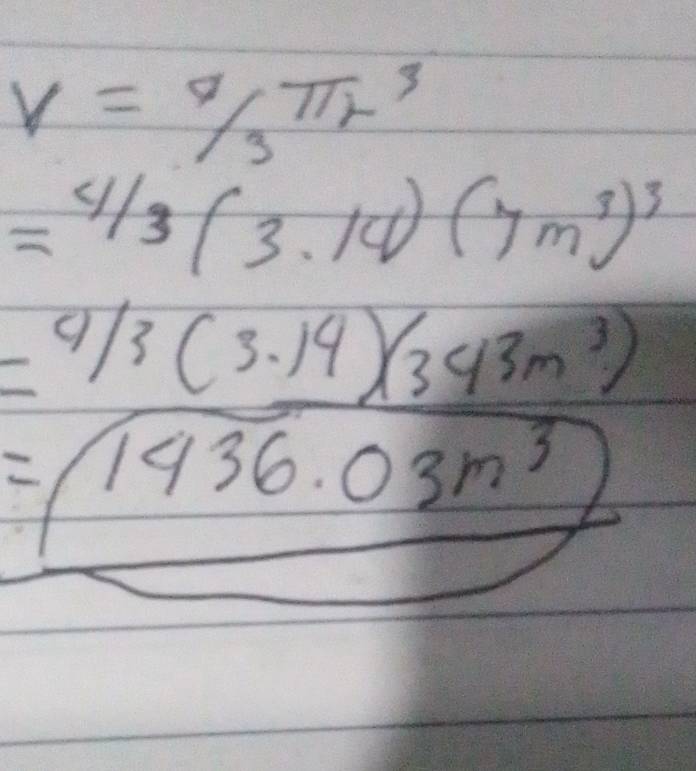 V = 4/3 πr³
= 4/3 (3.14) (7m³)³
= 4/3 (3.14)(343m³)
= 1436.03m³